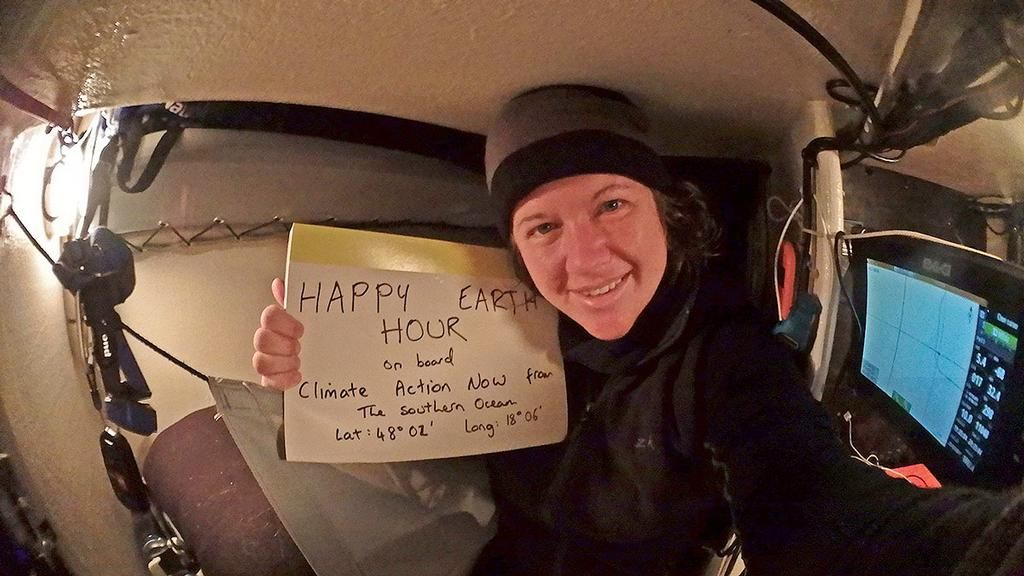 HAPPY EARTH
HOUR
on board
Climate Action Now from
The Southern Ocean
Lat: 48° 02' Long: 18° 06'